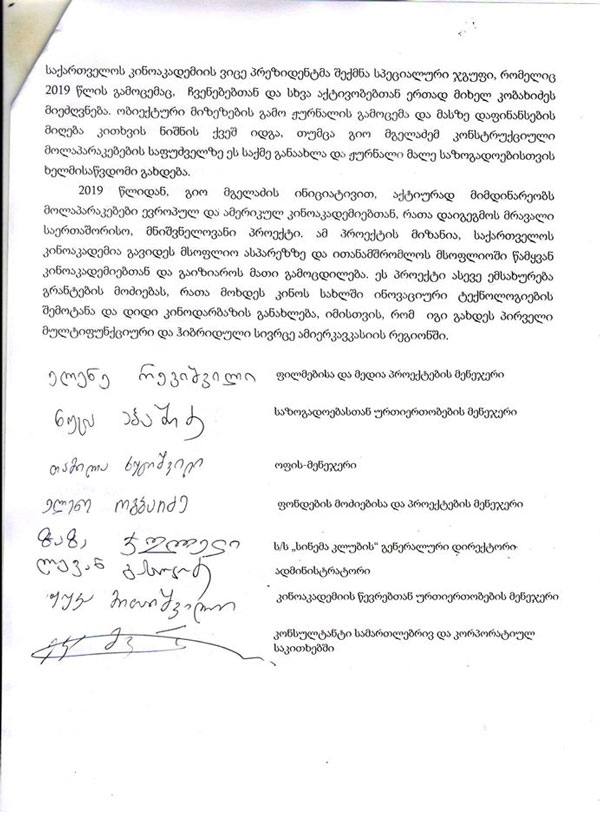 საქართველოს კინოაკადემიის ვიცე პრეზიდენტმა შექმნა სპეციალური ჯგუფი, რომელიც
2019 წლის გამოცემაც, ჩვენებებთან და სხვა აქტივობებთან ერთად მიხელ კობახიძეს
მიეძღვნება. ობიექტური მიზეზების გამო ჟურნალის გამოცემა და მასზე დაფინანსების
მიღება კითხვის ნიშნის ქვეშ იდგა, თუმცა გიო მგელაძემ კონსტრუქციული
მოლაპარაკებების საფუძველზე ეს საქმე განაახლა და ჟურნალი მალე საზოგადოებისთვის
ხელმისაწვდომი გახდება.
2019 წლიდან, გიო მგელაძის ინიციატივით, აქტიურად მიმდინარეობს
მოლაპარაკებები ევროპულ და ამერიკულ კინოაკადემიებთან, რათა დაიგეგმოს მრავალი
საერთაშორისო, მნიშვნელოვანი პროექტი. ამ პროექტის მიზანია, საქართველოს
კინოაკადემია გავიდეს მსოფლიო ასპარეზზე და ითანამშრომლოს მსოფლიოში წამყვან
კინოაკადემიებთან და გაიზიაროს მათი გამოცდილება. ეს პროექტი ასევე ემსახურება
გრანტების მოძიებას, რათა მოხდეს კინოს სახლში ინოვაციური ტექნოლოგიების
შემოტანა და დიდი კინოდარბაზის განახლება, იმისთვის, რომ იგი გახდეს პირველი
მულტიფუნქციური და ჰიბრიდული სივრცე ამიერკავკასიის რეგიონში.
ელენე რევიშვილი ფილმებისა და მედია პროექტების მენეჯერი
საზოგადოებასთან ურთიერთობების მენეჯერი
თამილა ოფის-მენეჯერი
ელენე ფონდების მოძიებისა და პროექტების მენეჯერი
ზაზა ს/ს „სინემა კლუბის“ გენერალური დირექტორი
ლევან ადმინისტრატორი
კინოაკადემიის წევრებთან ურთიერთობების მენეჯერი
კონსულტანტი სამართლებრივ და კორპორატიულ
საკითხებში